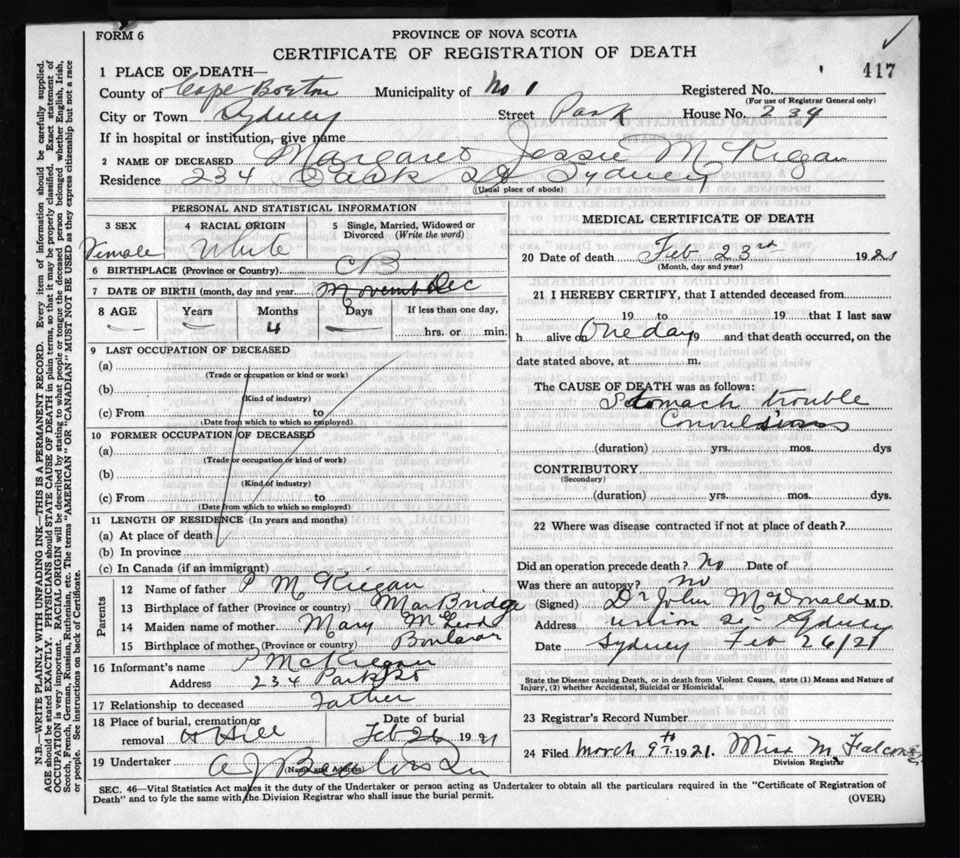 FORM 6
PROVINCE OF NOVA SCOTIA
CERTIFICATE OF REGISTRATION OF DEATH
417
1 PLACE OF DEATH—
County of Cape Breton Municipality of No 1 Registered No.
(For use of Registrar General only)
City or Town Sydney Street Park House No. 234
If in hospital or institution, give name
2 NAME OF DECEASED Margaret Jessie McKigan
Residence 234 Park St Sydney
(Usual place of abode)
PERSONAL AND STATISTICAL INFORMATION
3 SEX 4 RACIAL ORIGIN 5 Single, Married, Widowed or
Divorced (Write the word)
Female White
6 BIRTHPLACE (Province or Country) CB
7 DATE OF BIRTH (month, day and year Dec
8 AGE Years Months Days If less than one day,
— 4 — hrs. or min.
9 LAST OCCUPATION OF DECEASED
(a)
(Trade or occupation or kind or work)
(b)
(Kind of industry)
(c) From to
(Date from which to which so employed)
10 FORMER OCCUPATION OF DECEASED
(a)
(Trade or occupation or kind of work)
(b)
(Kind of industry)
(c) From to
(Date from which to which so employed)
11 LENGTH OF RESIDENCE (In years and months)
(a) At place of death
(b) In province
(c) In Canada (if an immigrant)
Parents
12 Name of father P McKiegan
13 Birthplace of father (Province or country) Mar Bridge
14 Maiden name of mother Mary McLeod
15 Birthplace of mother (Province or country)
16 Informant's name P McKiegan
Address 234 Park St
17 Relationship to deceased Father
18 Place of burial, cremation or Date of burial
removal H Hill Feb 26 1921
19 Undertaker A J
(Name and Address)
MEDICAL CERTIFICATE OF DEATH
20 Date of death Feb 23rd 1921
(Month, day and year)
21 I HEREBY CERTIFY, that I attended deceased from
19 to 19 that I last saw
h alive on One day 19 and that death occurred, on the
date stated above, at m.
The CAUSE OF DEATH was as follows:
Stomach trouble
Convulsions
(duration) yrs. mos. dys
CONTRIBUTORY
(Secondary)
(duration) yrs. mos. dys.
22 Where was disease contracted if not at place of death?
Did an operation precede death? No Date of
Was there an autopsy? no
(Signed) Dr John McDonald M.D.
Address Union St Sydney
Date Sydney Feb 26/21
State the Disease causing Death, or in death from Violent Causes, state (1) Means and Nature of
Injury, (2) whether Accidental, Suicidal or Homicidal.
23 Registrar's Record Number
24 Filed March 9th 1921. Miss M Falconer
Division Registrar
SEC. 46—Vital Statistics Act makes it the duty of the Undertaker or person acting as Undertaker to obtain all the particulars required in the "Certificate of Registration of
Death" and to fyle the same with the Division Registrar who shall issue the burial permit.
(OVER)
N.B.—WRITE PLAINLY WITH UNFADING INK—THIS IS A PERMANENT RECORD. Every item of information should be carefully supplied.
AGE should be stated EXACTLY. PHYSICIANS should STATE CAUSE OF DEATH in plain terms, so that it may be properly classified. Exact statement of
OCCUPATION is very important. RACIAL ORIGIN will be described by stating to what people or tongue the deceased person belonged whether English, Irish,
Scotch, French, German, Russian, Ruthenian, etc. The terms "AMERICAN" or "CANADIAN" MUST NOT BE USED as they express citizenship but not a race
or people. See instructions on back of Certificate.